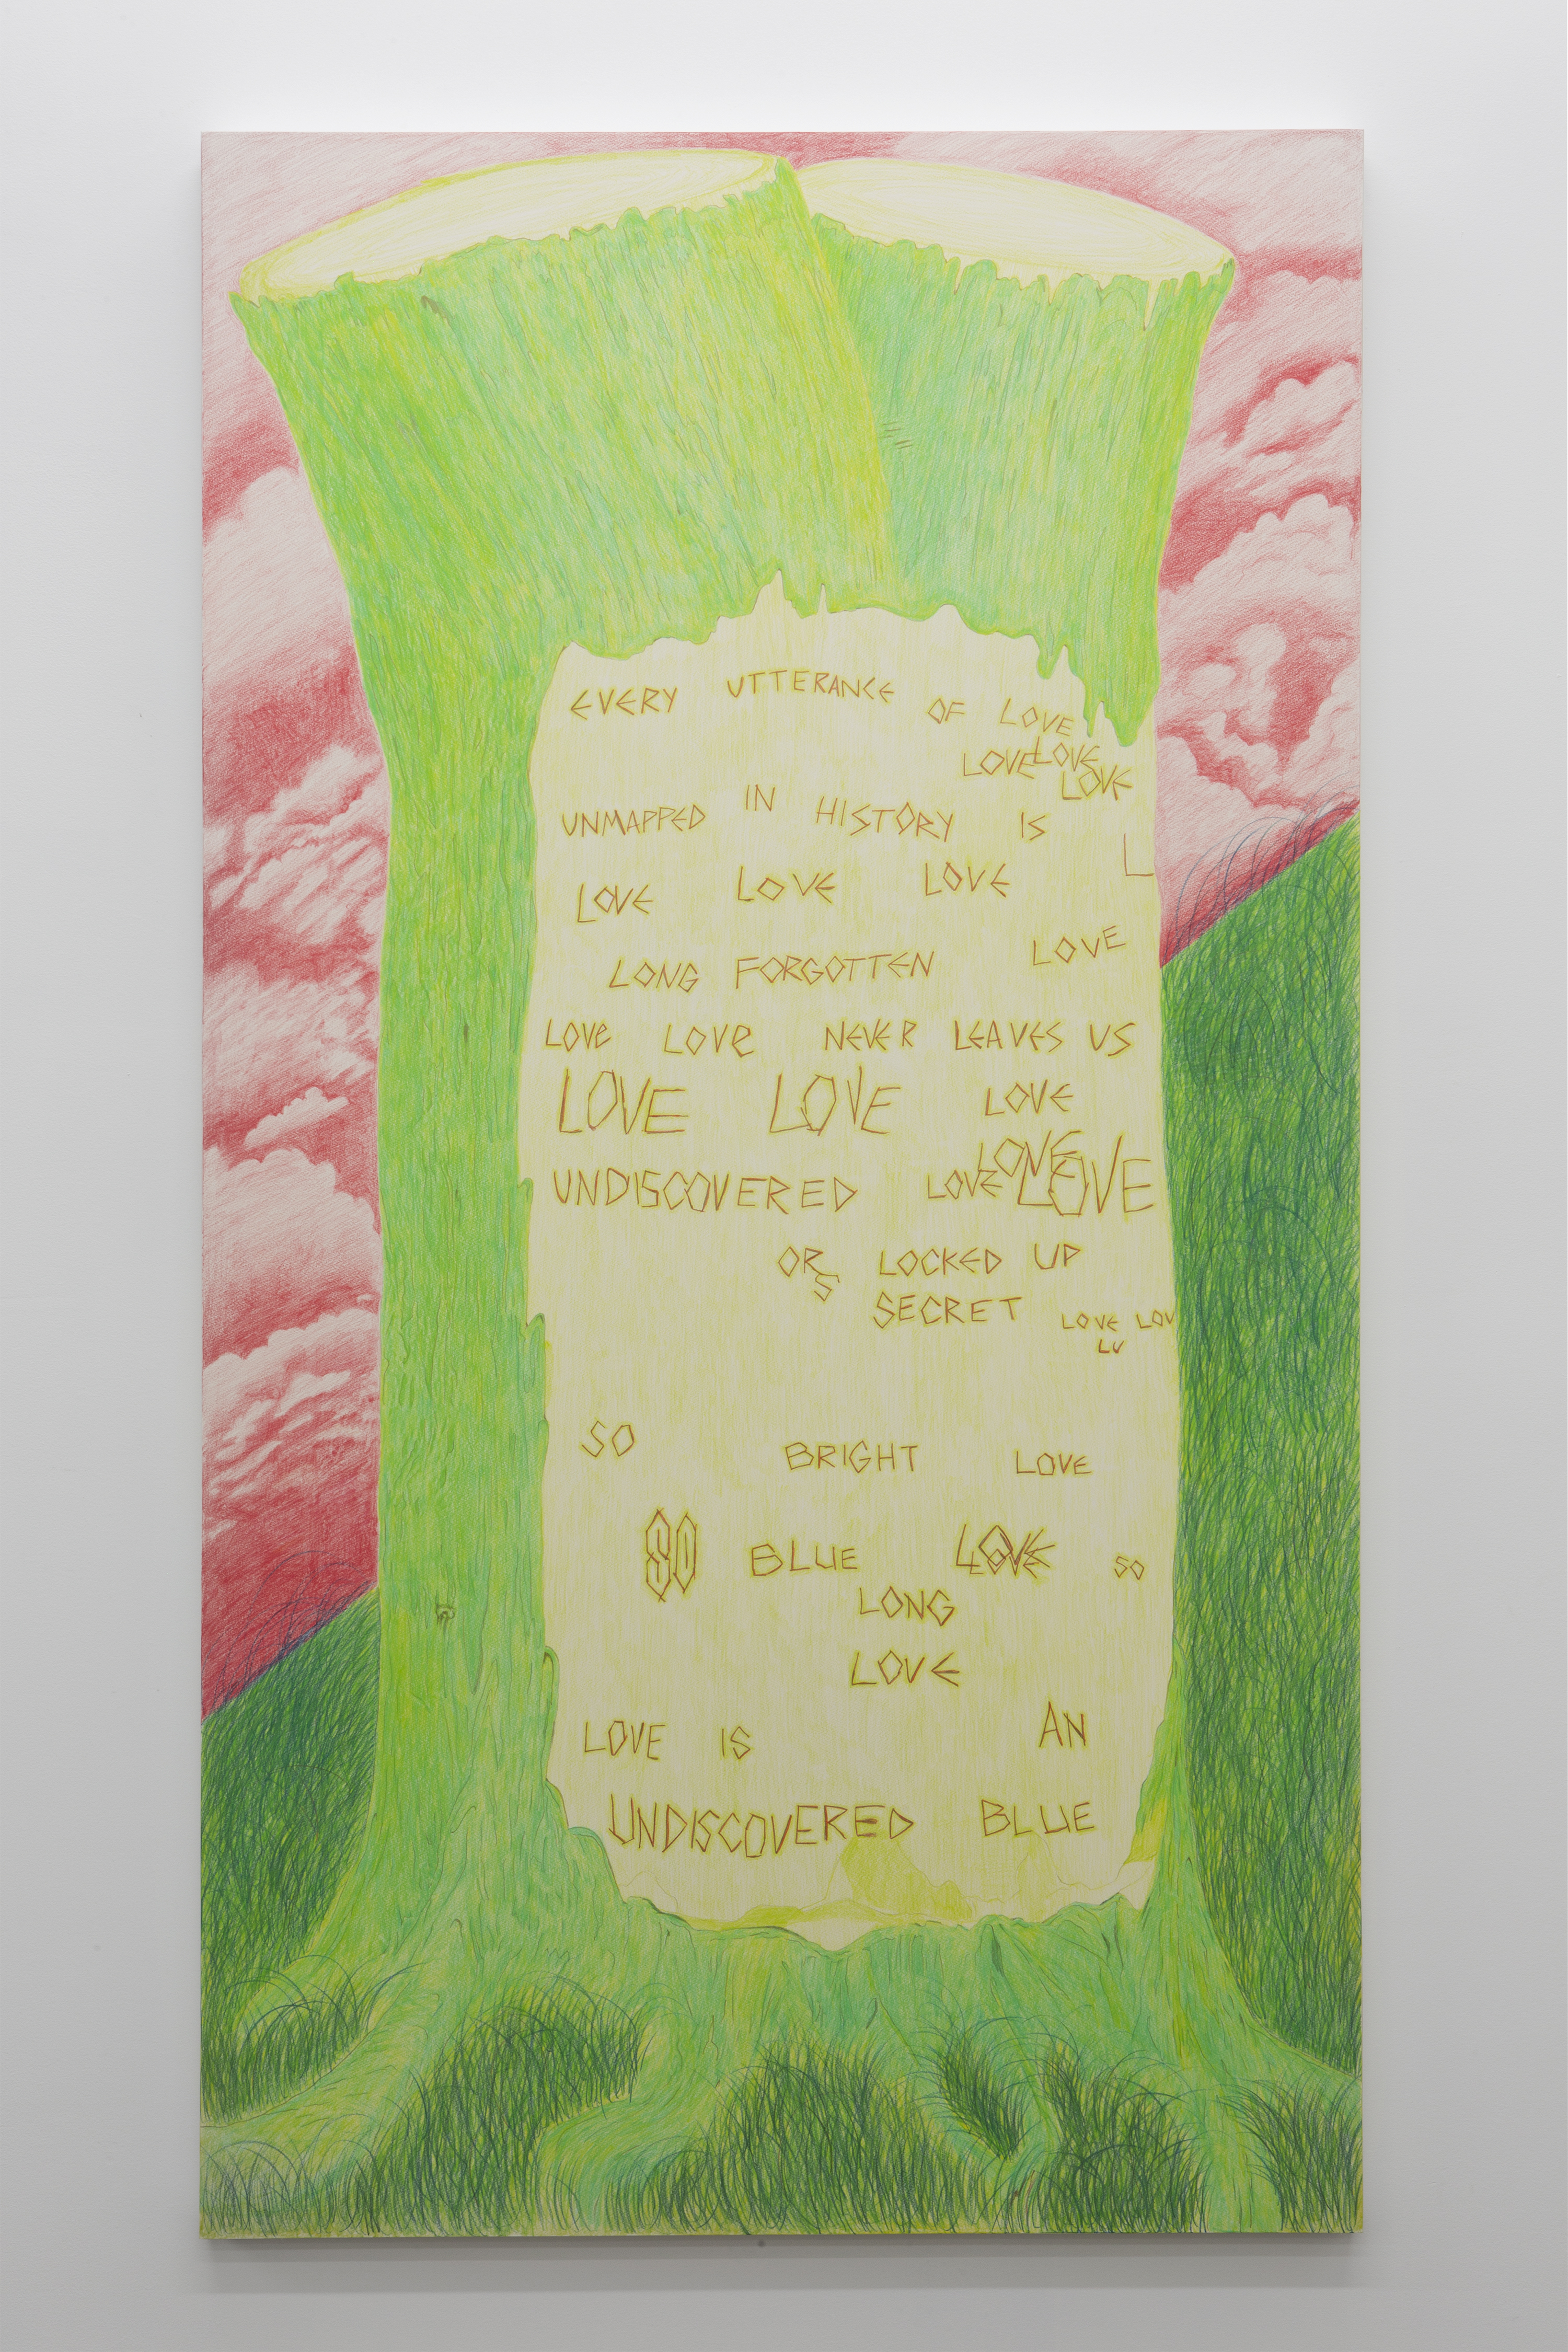 EVERY UTTERANCE OF LOVE
LOVE LOVE
LOVE
UNMAPPED IN HISTORY IS
L
LOVE LOVE LOVE
LOVE
LONG FORGOTTEN
LOVE LOVE NEVER LEAVES US
LOVE LOVE LOVE
LOVE
UNDISCOVERED LOVE LOVE
OR LOCKED UP
S
SECRET LOVE LOV
LV
SO BRIGHT LOVE
SO BLUE LOVE SO
LONG
LOVE
LOVE IS AN
UNDISCOVERED BLUE